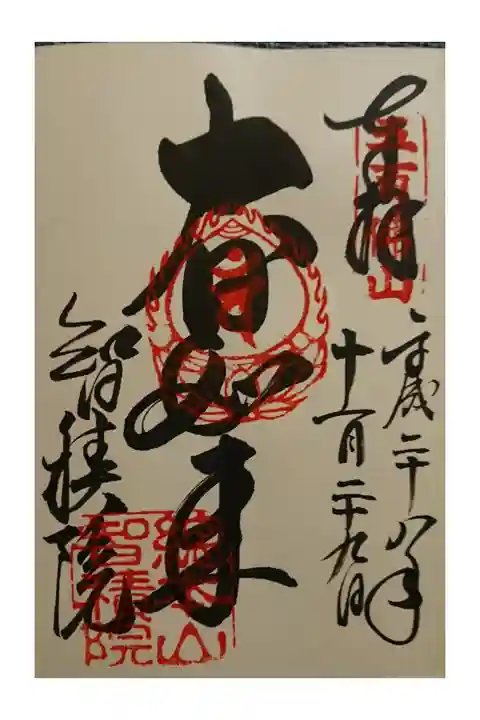 奉拝
五百佛山
平成二十八年
十一月二十九日
大日如来
智積院
總本山
智積院